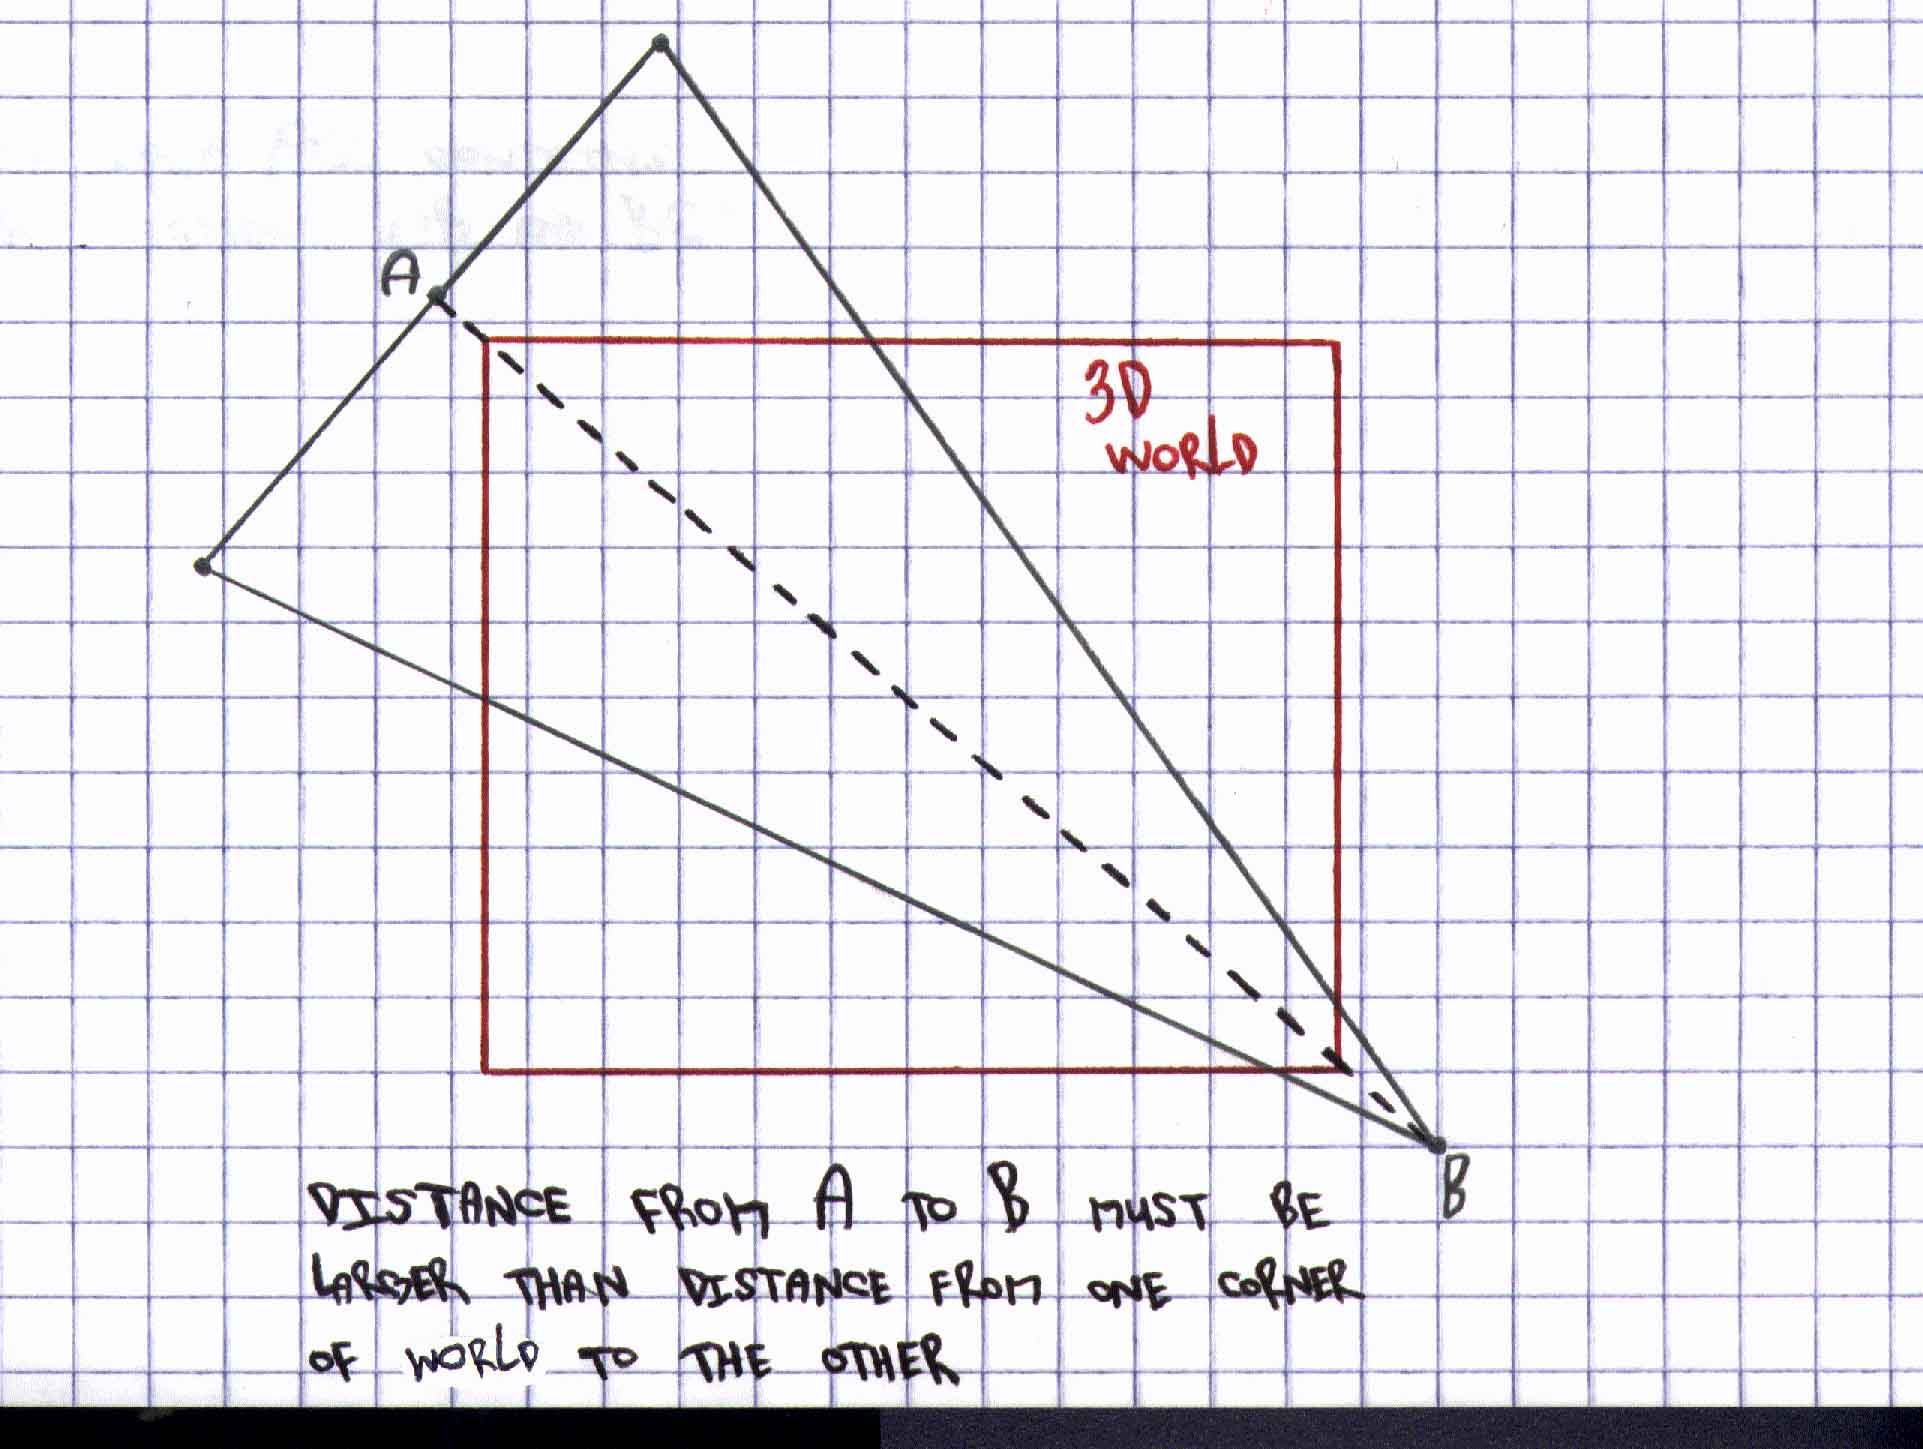 A
3D
WORLD
B
DISTANCE FROM A TO B MUST BE
LARGER THAN DISTANCE FROM ONE CORNER
OF WORLD TO THE OTHER